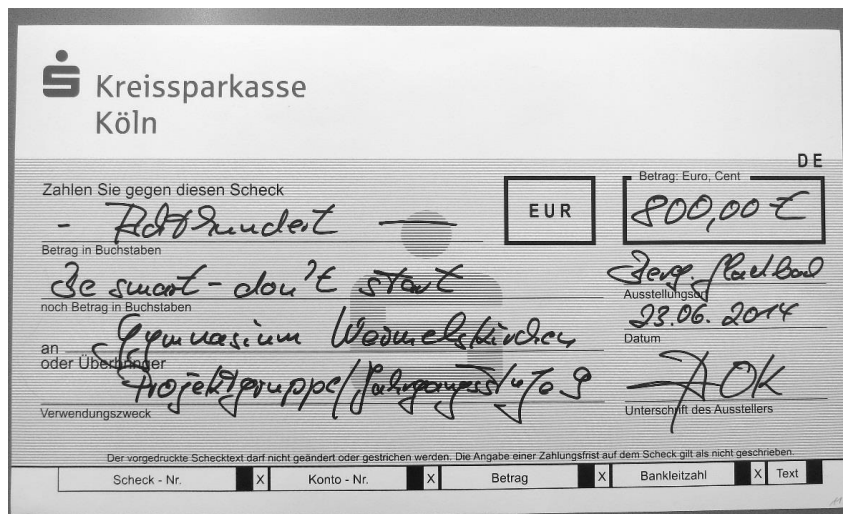 Kreissparkasse
Köln
DE
Zahlen Sie gegen diesen Scheck
- Achthundert -
EUR
Betrag: Euro, Cent
800,00 €
Betrag in Buchstaben
Be smart - don't start
Berg. Gladbad
noch Betrag in Buchstaben
Ausstellungsort
23.06. 2014
Datum
an Gymnasium Wermelskirchen
oder Überbringer
Projektgruppe/Jahrgangsstufe 9
AOK
Verwendungszweck
Unterschrift des Ausstellers
Der vorgedruckte Schecktext darf nicht geändert oder gestrichen werden. Die Angabe einer Zahlungsfrist auf dem Scheck gilt als nicht geschrieben.
Scheck - Nr. X Konto - Nr. X Betrag X Bankleitzahl X Text